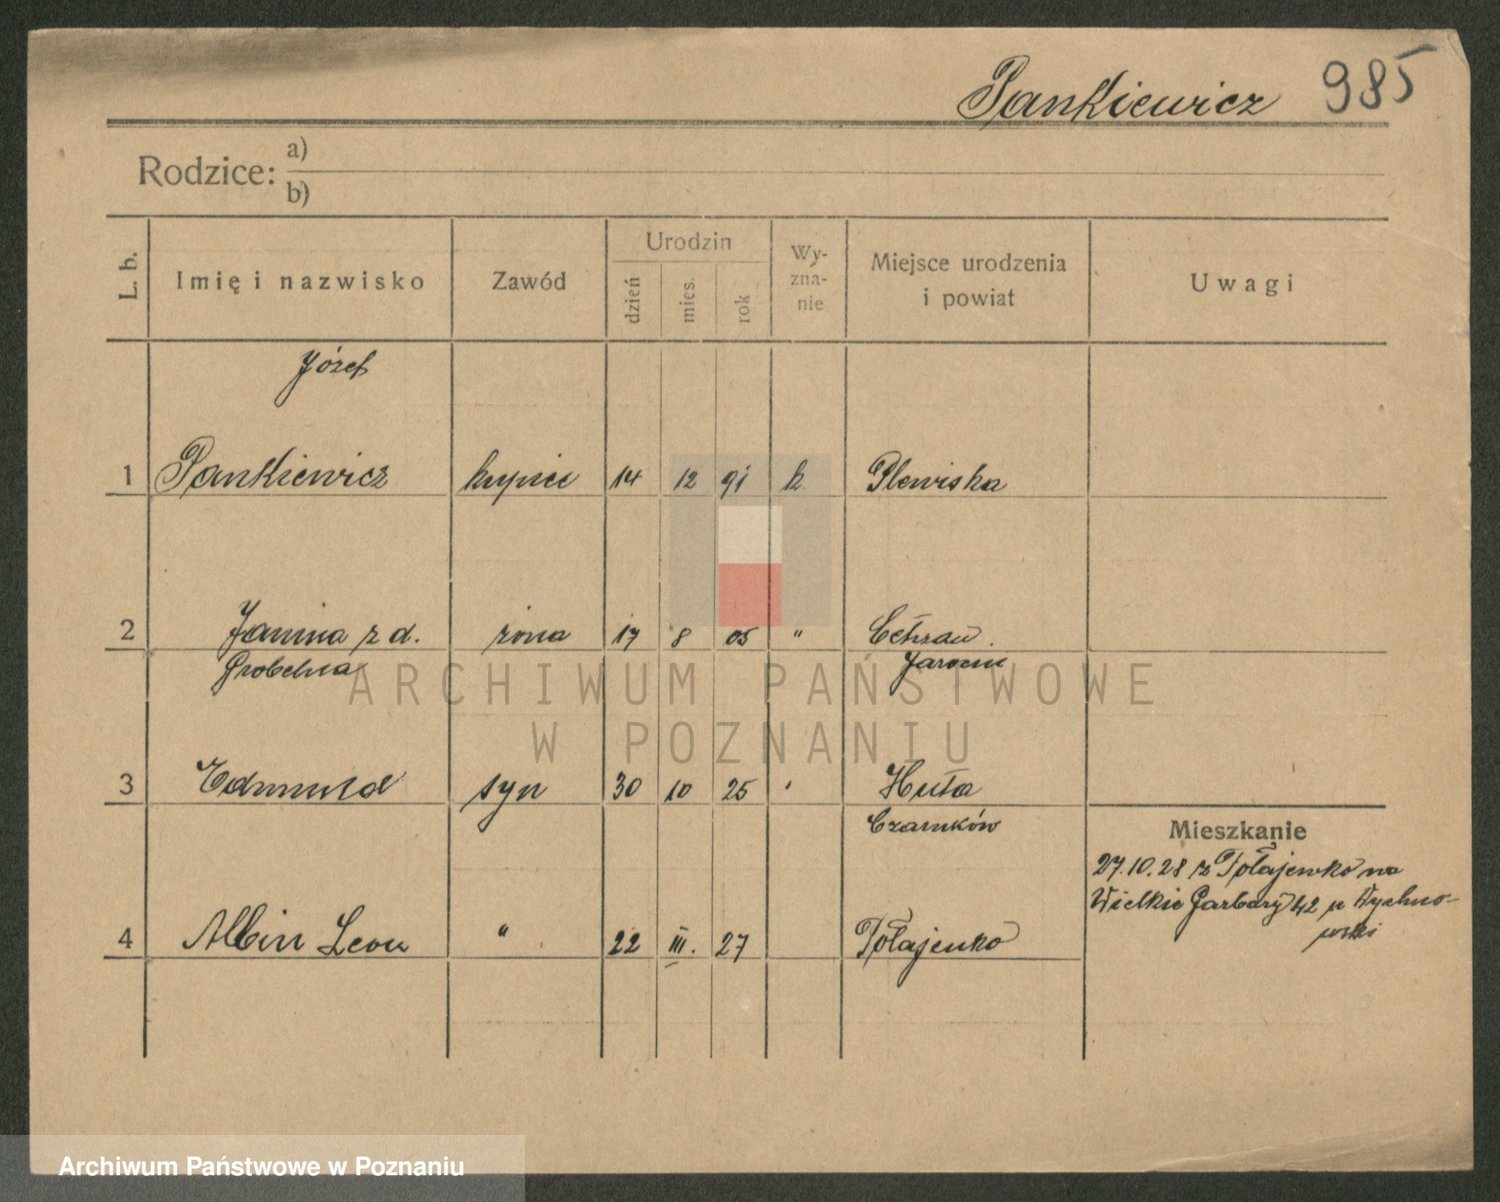 Pankiewicz 985
Rodzice: a)
b)
L. b. Imię i nazwisko Zawód Urodzin dzień mies. rok Wy-zna-nie Miejsce urodzenia i powiat Uwagi
Józef
1 Pankiewicz kupiec 14 12 91 k. Plewiska
2 Janina z d. żona 17 8 05 " Cchrau
Grobelna Jarocin
ARCHIWUM PAŃSTWOWE
W POZNANIU
3 Edmund syn 30 10 25 " Huta
Czarnków
Mieszkanie
27.10.28 z Połajewko na
Wielkie Garbary 42 u
4 Albin Leon " 22 III. 27 Połajewko
Archiwum Państwowe w Poznaniu